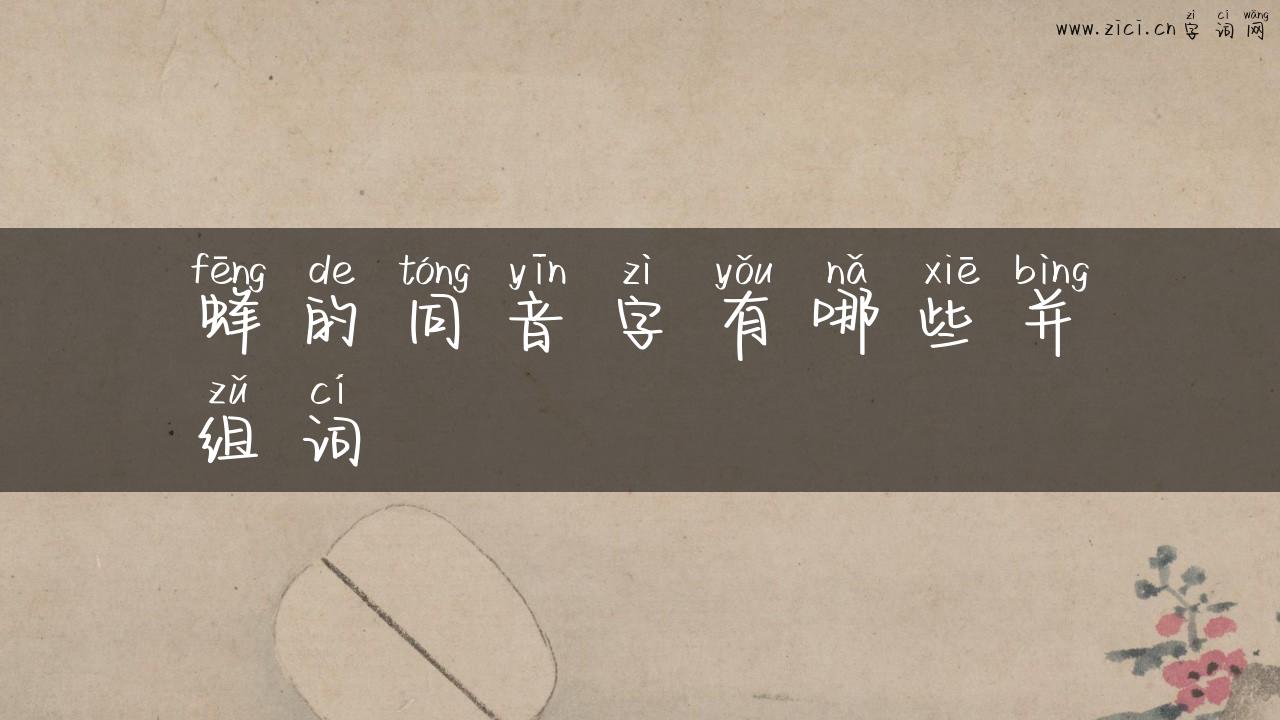 zì cí wǎng
www.zici.cn 字词网
fēng de tóng yīn zì yǒu nǎ xiē bìng
蜂的同音字有哪些并
zǔ cí
组词